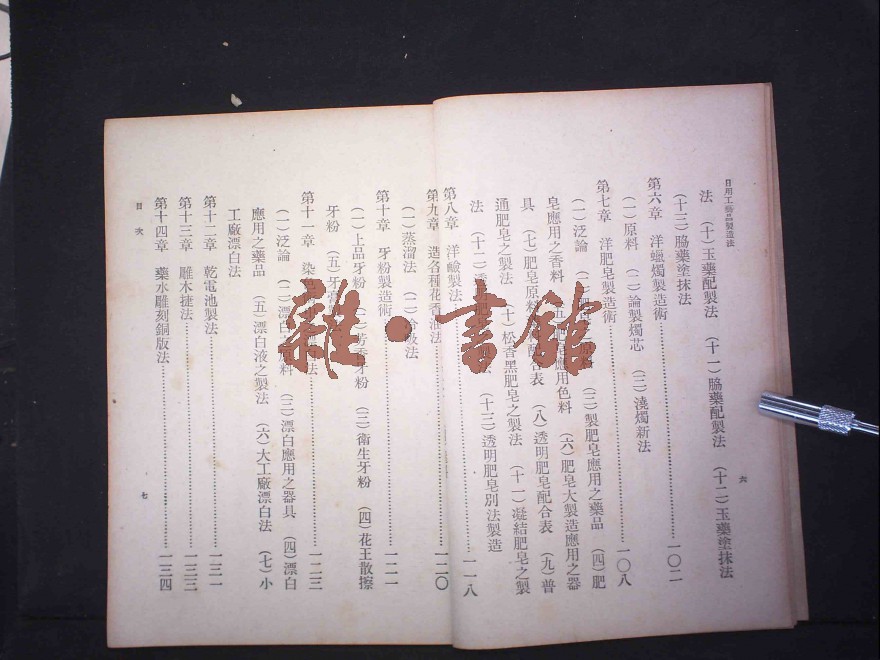 日用工藝品製造法
法　(十)玉藥配製法　(十一)脇藥配製法　(十二)玉藥塗抹法
(十三)脇藥塗抹法
第六章　洋蠟燭製造術……一〇二
(一)原料　(二)論製燭芯　(三)澆燭新法
第七章　洋肥皂製造術……一〇八
(一)泛論　(三)製肥皂應用之藥品　(四)肥
皂應用之香料　應用色料　(六)肥皂大製造應用之器
具　(七)肥皂原料配合表　(八)透明肥皂配合表　(九)普
通肥皂之製法　(十)松香黑肥皂之製法　(十一)凝結肥皂之製
法　(十二)透明肥　法　(十三)透明肥皂別法製造
第八章　洋鹼製法……一一八
六
第九章　造各種花香油法……一二〇
(一)蒸溜法　(二)法
第十章　牙粉製造術……一二一
(一)上品牙粉　牙粉　(三)衛生牙粉　(四)花王散擦
牙粉　(五)牙
第十一章　染色　法……一二三
(一)泛論　(二)漂白　料　(三)漂白應用之器具　(四)漂白
應用之藥品　(五)漂白液之製法　(六)大工廠漂白法　(七)小
工廠漂白法
第十二章　乾電池製法……一三一
第十三章　雕木捷法……一三三
第十四章　藥水雕刻銅版法……一三四
目次
七
雜・書館